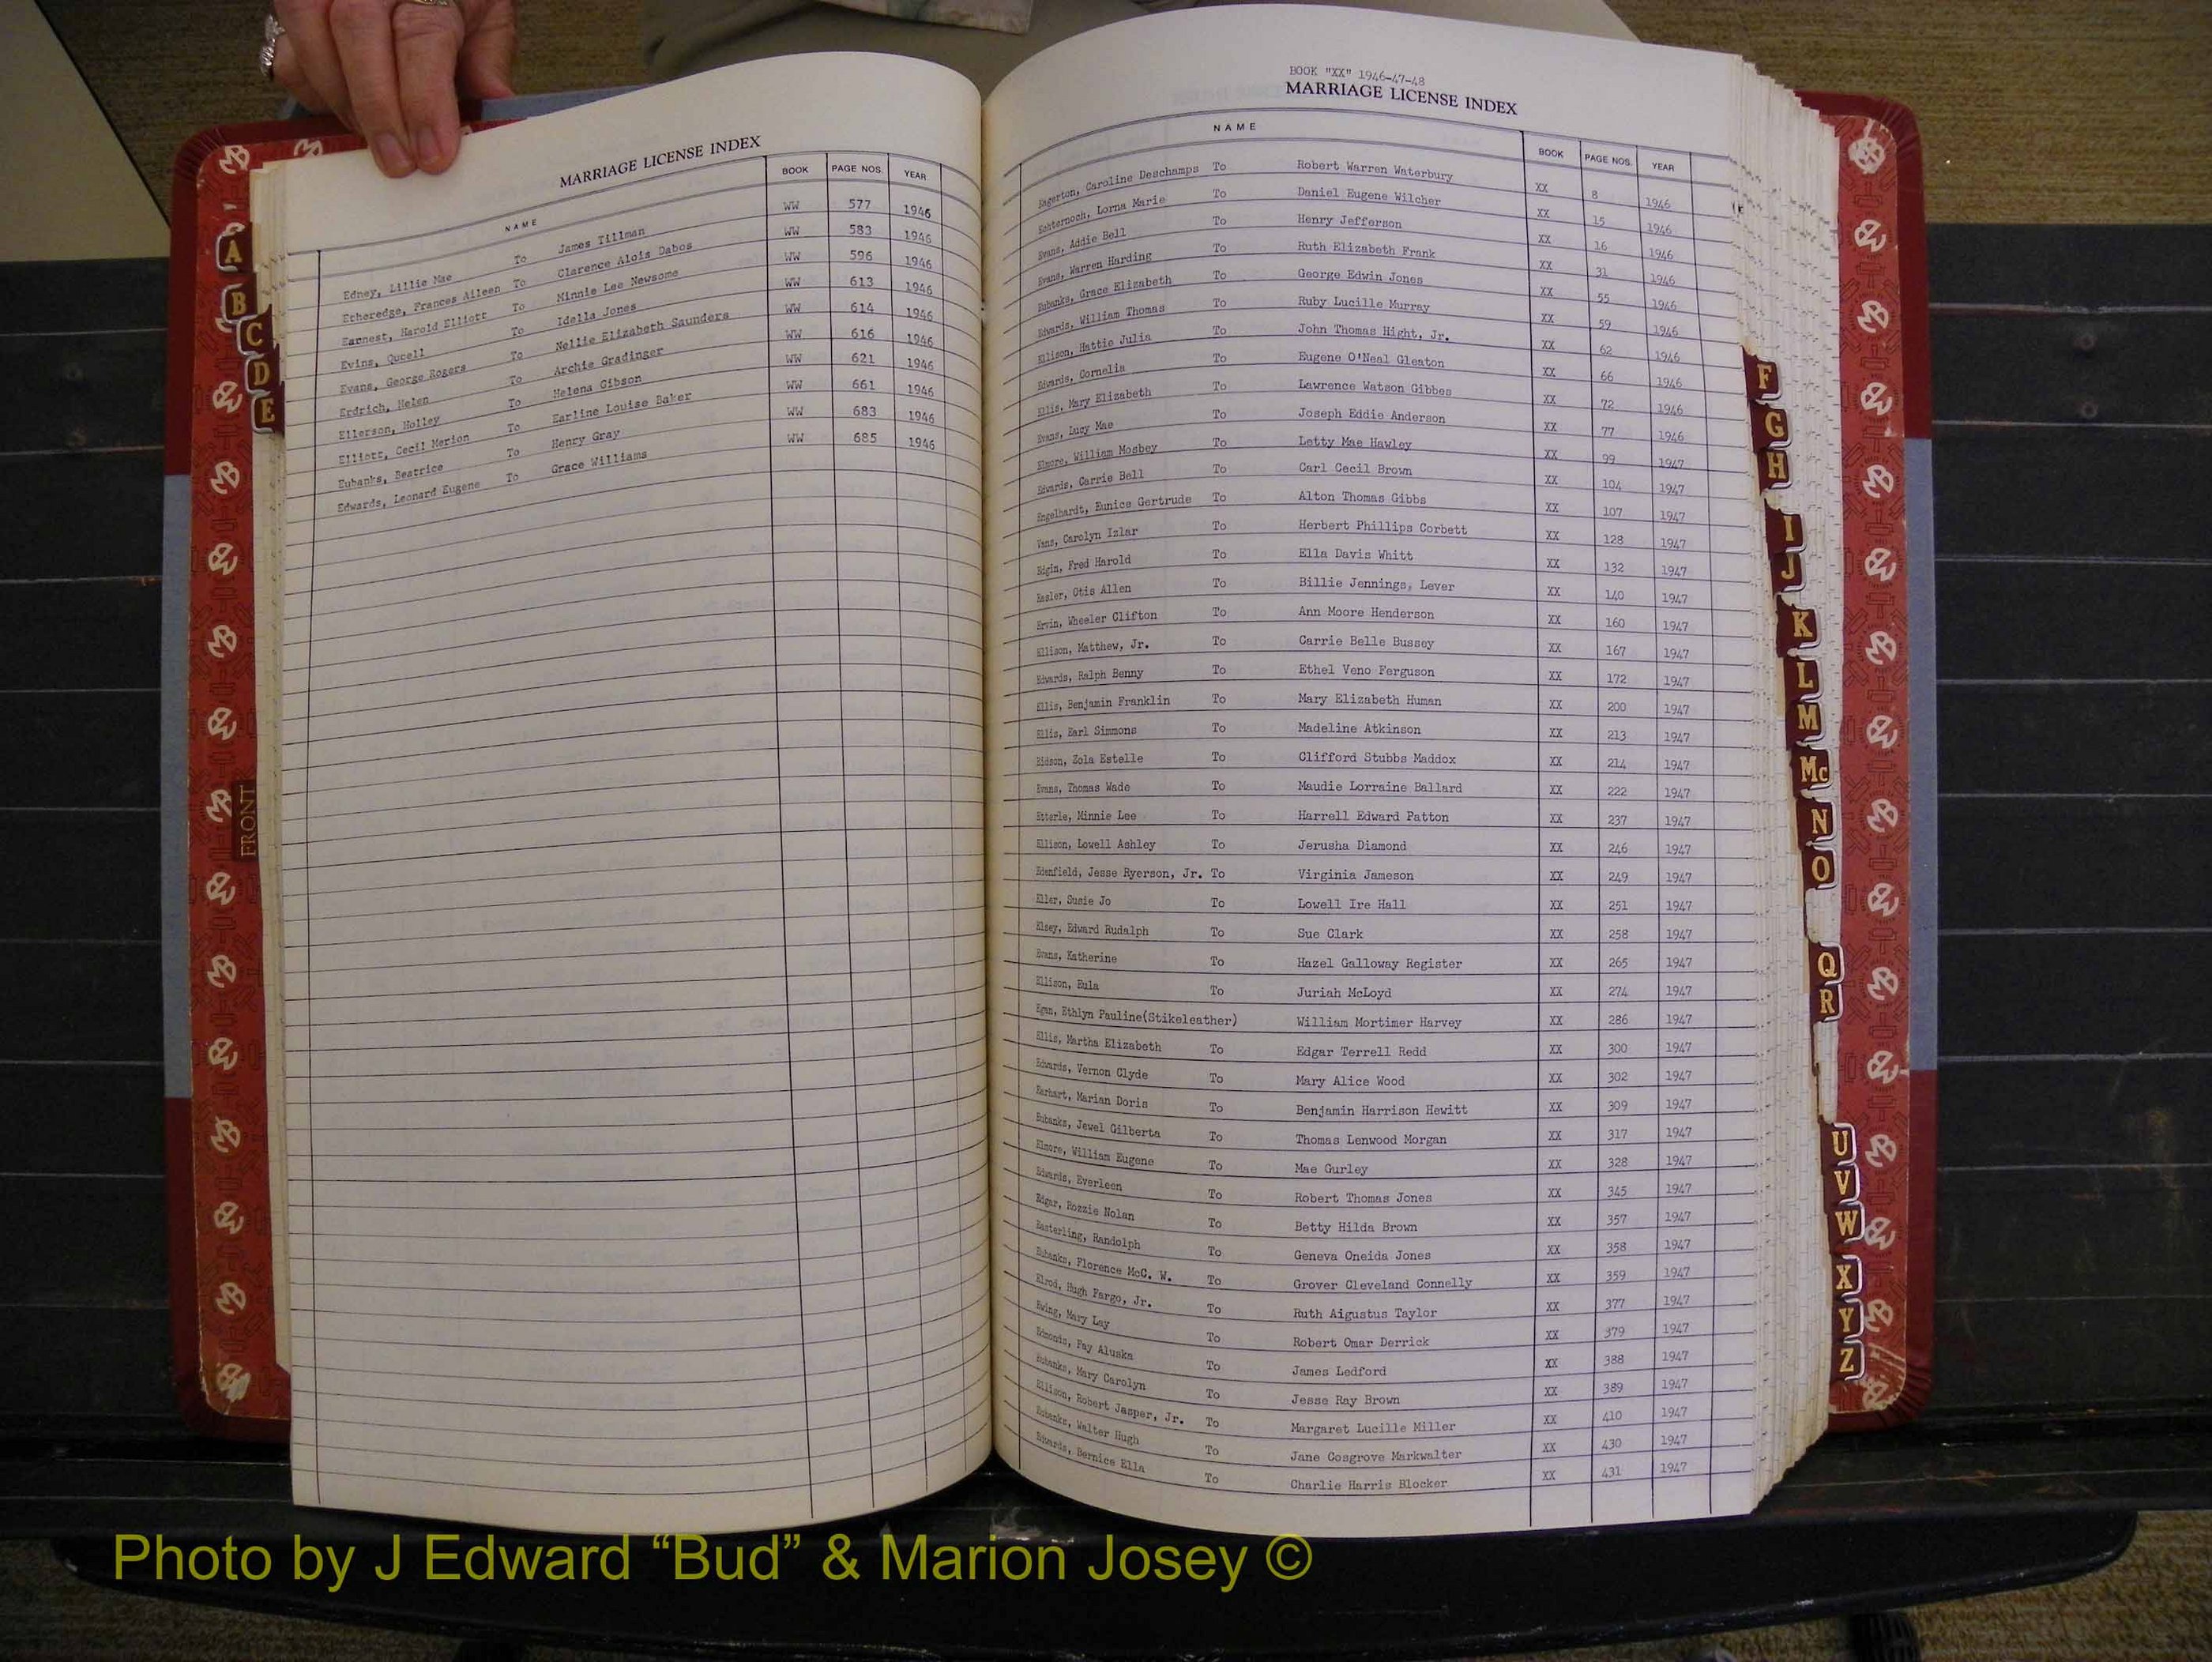 MARRIAGE LICENSE INDEX
NAME BOOK PAGE NOS. YEAR
Edney, Lillie Mae To James Tillman WW 577 1946
Etheredge, Frances Aileen To Clarence Alois Dabos WW 583 1946
Earnest, Harold Elliott To Minnie Lee Newsome WW 596 1946
Evins, Qucell To Idella Jones WW 613 1946
Evans, George Rogers To Nellie Elizabeth Saunders WW 614 1946
Erdrich, Helen To Archie Gradinger WW 616 1946
Ellerson, Holley To Helena Gibson WW 621 1946
Elliott, Cecil Merion To Earline Louise Baker WW 661 1946
Eubanks, Beatrice To Henry Gray WW 683 1946
Edwards, Leonard Eugene To Grace Williams WW 685 1946
A
B
C
D
E
FRONT
BOOK "XX" 1946-47-48
MARRIAGE LICENSE INDEX
NAME BOOK PAGE NOS. YEAR
Egerton, Caroline Deschamps To Robert Warren Waterbury XX 8 1946
Echternoch, Lorna Marie To Daniel Eugene Wilcher XX 15 1946
Evans, Addie Bell To Henry Jefferson XX 16 1946
Evans, Warren Harding To Ruth Elizabeth Frank XX 31 1946
Eubanks, Grace Elizabeth To George Edwin Jones XX 55 1946
Edwards, William Thomas To Ruby Lucille Murray XX 59 1946
Ellison, Hattie Julia To John Thomas Hight, Jr. XX 62 1946
Edwards, Cornelia To Eugene O'Neal Gleaton XX 66 1946
Ellis, Mary Elizabeth To Lawrence Watson Gibbes XX 72 1946
Evans, Lucy Mae To Joseph Eddie Anderson XX 77 1946
Elmore, William Mosbey To Letty Mae Hawley XX 99 1947
Edwards, Carrie Bell To Carl Cecil Brown XX 104 1947
Engelhardt, Eunice Gertrude To Alton Thomas Gibbs XX 107 1947
Vans, Carolyn Izlar To Herbert Phillips Corbett XX 128 1947
Edgin, Fred Harold To Ella Davis Whitt XX 132 1947
Easler, Otis Allen To Billie Jennings, Lever XX 140 1947
Ervin, Wheeler Clifton To Ann Moore Henderson XX 160 1947
Ellison, Matthew, Jr. To Carrie Belle Bussey XX 167 1947
Edwards, Ralph Benny To Ethel Veno Ferguson XX 172 1947
Ellis, Benjamin Franklin To Mary Elizabeth Human XX 200 1947
Ellis, Earl Simmons To Madeline Atkinson XX 213 1947
Eidson, Zola Estelle To Clifford Stubbs Maddox XX 214 1947
Evans, Thomas Wade To Maudie Lorraine Ballard XX 222 1947
Etterle, Minnie Lee To Harrell Edward Patton XX 237 1947
Ellison, Lowell Ashley To Jerusha Diamond XX 246 1947
Edenfield, Jesse Ryerson, Jr. To Virginia Jameson XX 249 1947
Eller, Susie Jo To Lowell Ire Hall XX 251 1947
Elsey, Edward Rudalph To Sue Clark XX 258 1947
Evans, Katherine To Hazel Galloway Register XX 265 1947
Ellison, Eula To Juriah McLoyd XX 274 1947
Egan, Ethlyn Pauline(Stikeleather) William Mortimer Harvey XX 286 1947
Ellis, Martha Elizabeth To Edgar Terrell Redd XX 300 1947
Edwards, Vernon Clyde To Mary Alice Wood XX 302 1947
Earhart, Marian Doris To Benjamin Harrison Hewitt XX 309 1947
Eubanks, Jewel Gilberta To Thomas Lenwood Morgan XX 317 1947
Elmore, William Eugene To Mae Gurley XX 328 1947
Edwards, Everleen To Robert Thomas Jones XX 345 1947
Edgar, Rozzie Nolan To Betty Hilda Brown XX 357 1947
Easterling, Randolph To Geneva Oneida Jones XX 358 1947
Eubanks, Florence McC. W. To Grover Cleveland Connelly XX 359 1947
Elrod, Hugh Fargo, Jr. To Ruth Aigustus Taylor XX 377 1947
Ewing, Mary Lay To Robert Omar Derrick XX 379 1947
Edmonds, Fay Aluska To James Ledford XX 388 1947
Eubanks, Mary Carolyn To Jesse Ray Brown XX 389 1947
Ellison, Robert Jasper, Jr. To Margaret Lucille Miller XX 410 1947
Eubanks, Walter Hugh To Jane Cosgrove Markwalter XX 430 1947
Edwards, Bernice Ella To Charlie Harris Blocker XX 431 1947
F
G
H
I
J
K
L
M
Mc
N
O
Q
R
U
V
W
X
Y
Z
Photo by J Edward “Bud” & Marion Josey ©